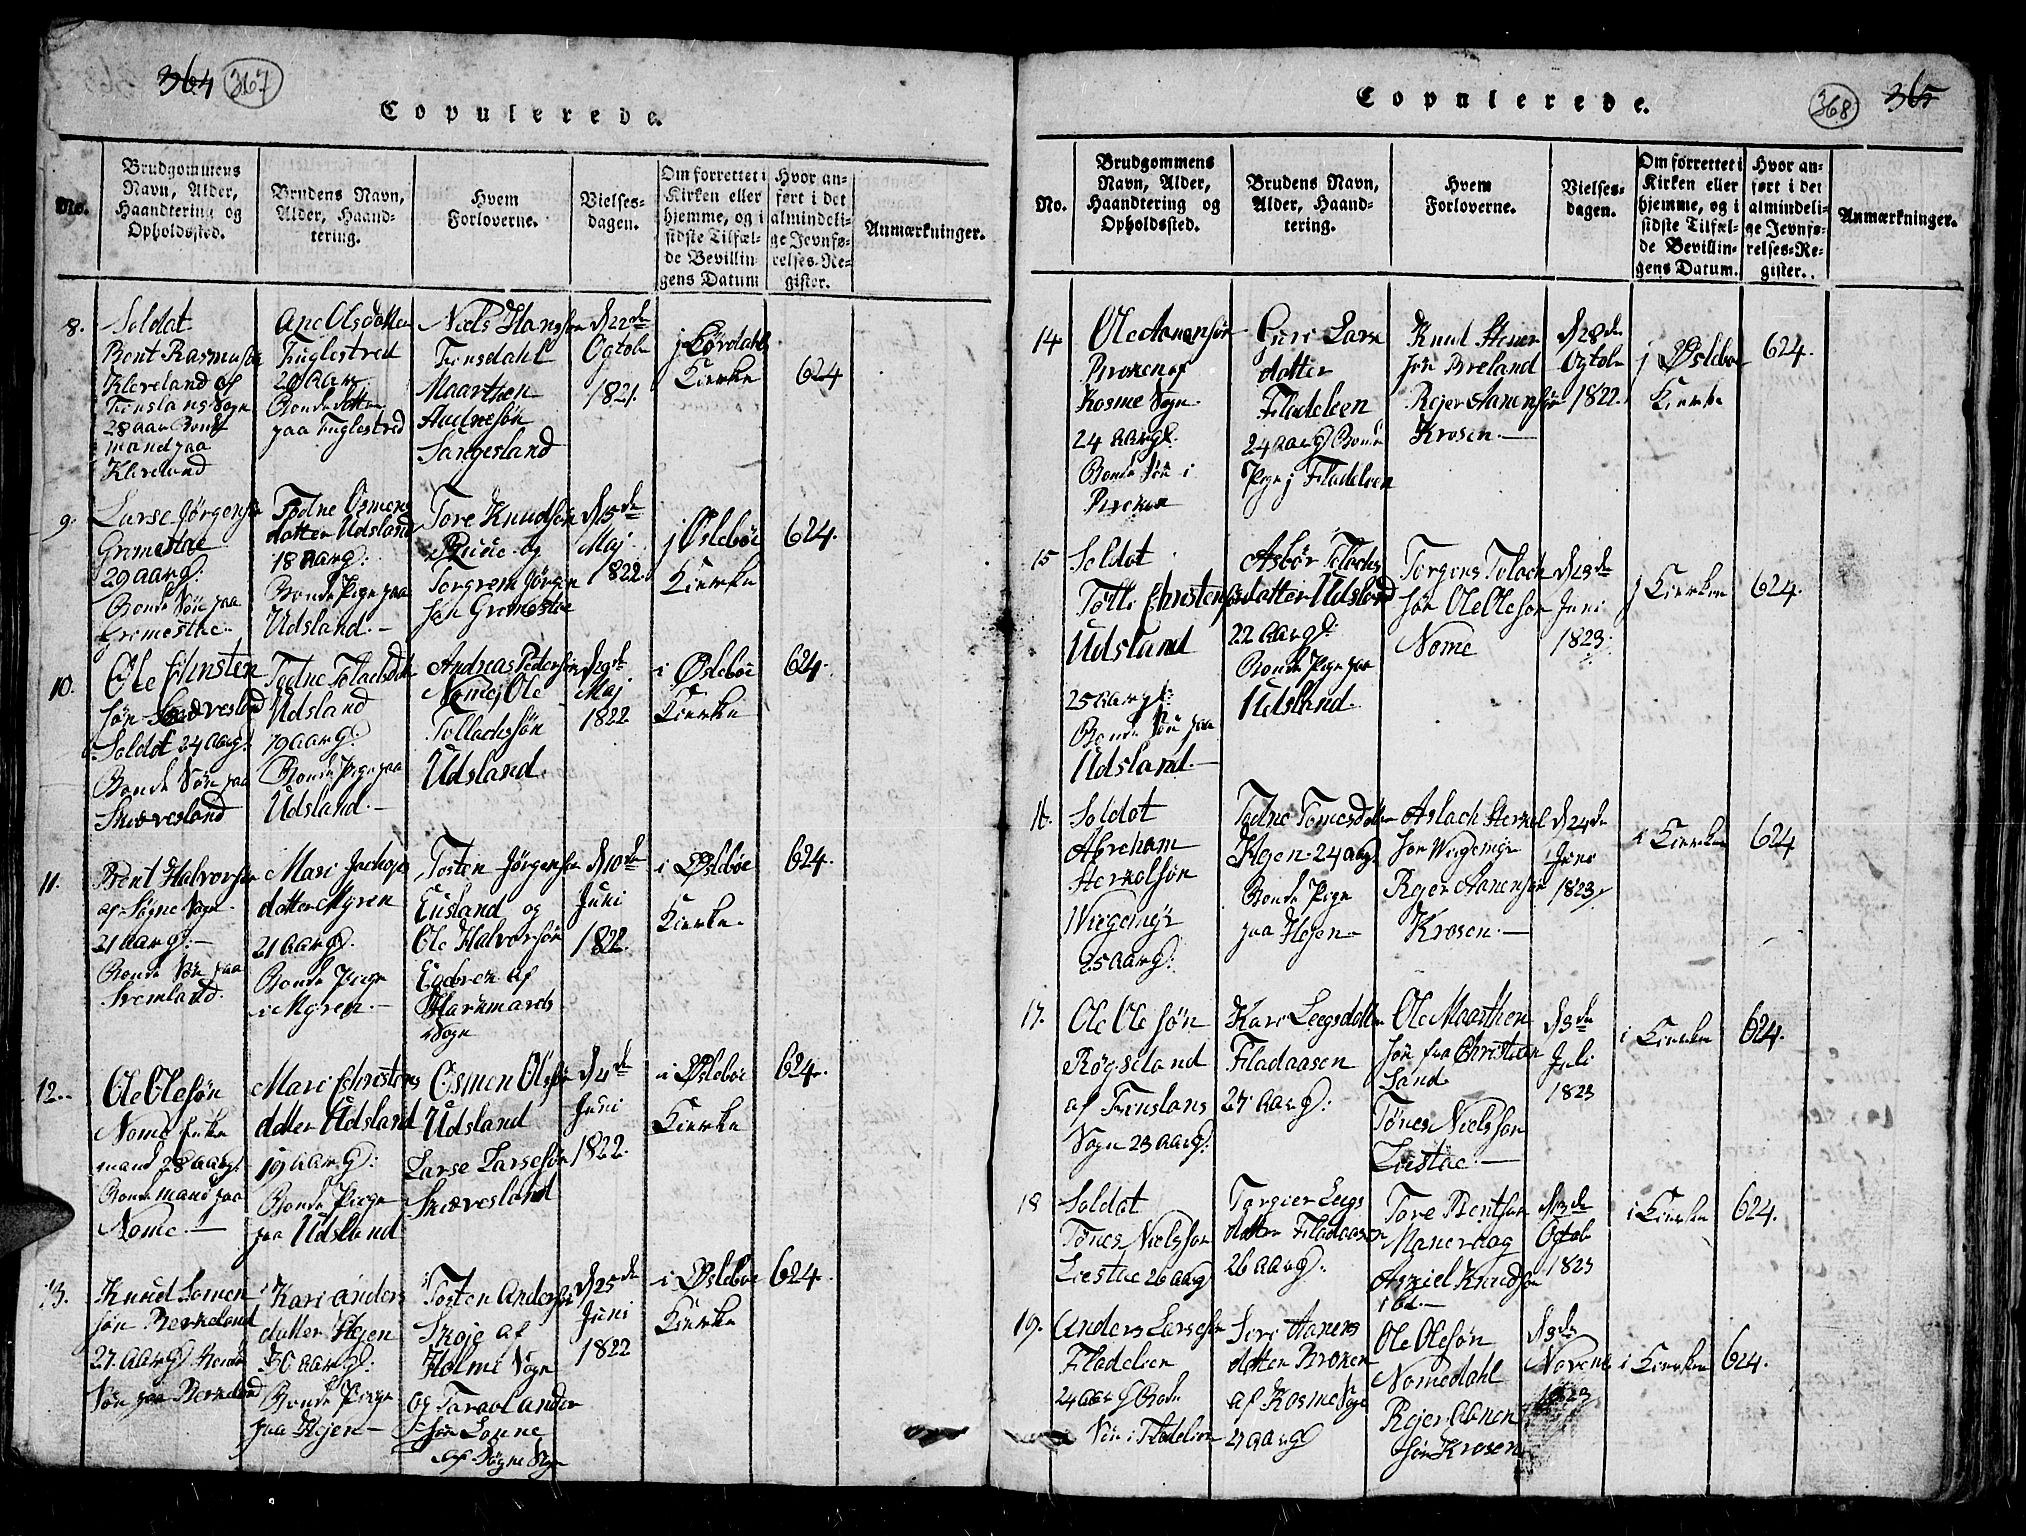 364 367
Copulerede.
No.
Brudgommens
Navn, Alder,
Haandtering og
Opholdssted.
Brudens Navn,
Alder, Haand-
tering.
Hvem
Forloverne.
Vielses-
dagen.
Om forrettet i
Kirken eller
hjemme, og i
sidste Tilfæl-
de Bevillin-
gens Datum
Hvor an-
ført i det
almindeli-
ge Jevnfø-
relses-Re-
gister.
Anmærkninger.
8.
Soldat
Bent Rasmusen
Kleveland af
Finslans Sogn
28 aar Bonde
mand paa
Kleveland
Ane Olsdatter
Fuglestved
20 aar
Bonde datter
paa Fuglestved
Niels Hansen
Finsdahl
Maarthen
Andresøn
Sangesland
d 22de
Ogtob
1821.
Kierke
624
9.
Larse Jørgensøn
Gromestae
29 aarg:
Bonde Søn paa
Gromestae.
Todne Osmens
datter Udsland
18 aarg:
Bonde Pige paa
Udsland.
Tore Knudsøn
og
Torgrem Jørgen
søn Gromestae
d 15de
Maj
1822.
j Øslebøe
Kierke
624.
10.
Ole Christen
søn Skævesland
Soldat 24 aarg:
Bonde Søn paa
Skievesland
Todne Tolaksdatter
Udsland
19 aarg:
Bonde Pige paa
Udsland.
Andreas Pedersøn
Nome j Ole
Tollachsøn
Udsland.
d 29de
Maj
1822
i Øslebøe
Kierke
624.
11.
Bent Halvorsen
af Søgne Sogn
21 aarg:
Bonde Søn paa
Mari Jachops
datter Myren
21 aarg.
Bonde Pige
i Myren.
Tosten Jørgensen
Eusland og
Ole Halvorsøn
af
Harkmarks
Sogn
d 10de
Juni
1822.
i Øslebøe
Kierke.
624.
12.
Ole Olesøn
Nome Enke
mand 28 aarg:
Bonde mand paa
Nome.
Mari Christens
datter Udsland
19 aarg:
Bonde Piege
paa Udsland
Osmen Olsøn
Udsland
Larse Larsesøn
Skievesland
d 4de
Juni
1822.
i Øslebøe
Kierke
624.
13.
Knud Lomen
søn Berkeland
27. aarg Bonde
Søn paa Berkeland
Kari Anders
datter Hejen
30 aarg:
Bonde Pige
paa Hejen
Tosten Andersøn
Skoje af
Holme Sogn
og Taraol Ander
søn Lonne
af Søgne Sogn
d 25de
Juni
1822
i Øslebøe
Kierke
624.
Copulerede.
368 365
No.
Brudgommens
Navn, Alder,
Haandtering og
Opholdssted.
Brudens Navn,
Alder, Haand-
tering.
Hvem
Forloverne.
Vielses-
dagen.
Om forrettet i
Kirken eller
hjemme, og i
sidste Tilfæl-
de Bevillin-
gens Datum.
Hvor an-
ført i det
almindeli-
ge Jevnfø-
relses-Re-
gister.
Anmærkninger.
14
Ole Aanensøn
Broken af
Kosme Sogn
24 aarg:
Bonde Søn i
Broken
Guri Lars
datter
Fladeleen
24 aarg Bonde
Pige j Fladeleen
Knud Stener
søn Breland
Rejer Aanensøn
Krosen.
d 28de
Ogtob
1822.
j Øslebøe
Kierke
624.
15
Soldat
Tolli Christensøn
Udsland
25 aarg:
Bonde Søn paa
Udsland.
Asbør Tolachs
datter Udsland
22 aarg:
Bonde Pige paa
Udsland.
Torgens Tolach
søn Ole Olesøn
Nome
d 13de
Juni
1823.
j Kierken
624.
16.
Soldat
Abreham
Herkolsøn
Wiegemyr
25 aarg:
Todne Tomesdatter
Hejen 24 aarg
Bonde Pige
paa Hejen
Aslach Herkol
søn Wigemyr
Rejer Aanensøn
Krosen.
d 24de
Juni
1823
i Kierken
624
17.
Ole Olesøn
Røgseland
af Finslans
Sogn 23 aarg:
Kari Leegsdatter
Fladaasen
27 aarg:
Ole Maarthen
søn fra Christian
Sand
Tønes Nielsøn
Liestae.
d 3de
Juli
1823
i Kierken
624.
18
Soldat
Tønes Nielsøn
Liestae 26 aarg
Torgier Leegs
datter Fladaasen
26 aarg:
Tore Bentsøn
Maneraag
Asriel Knudsøn
ibd.
d 13de
Ogtob
1823
i Kierken
624.
19.
Anders Larsesøn
Fladeleen
24 aar g Bonde
Søn i Fladeleen
Seri Aanens
datter Broken
af Kosme Sogn
21 aarg
Ole Olesøn
Nomedahl
Rejer Aanen
søn Krosen
d 3de
Novemb
1823
i Kierken
624.